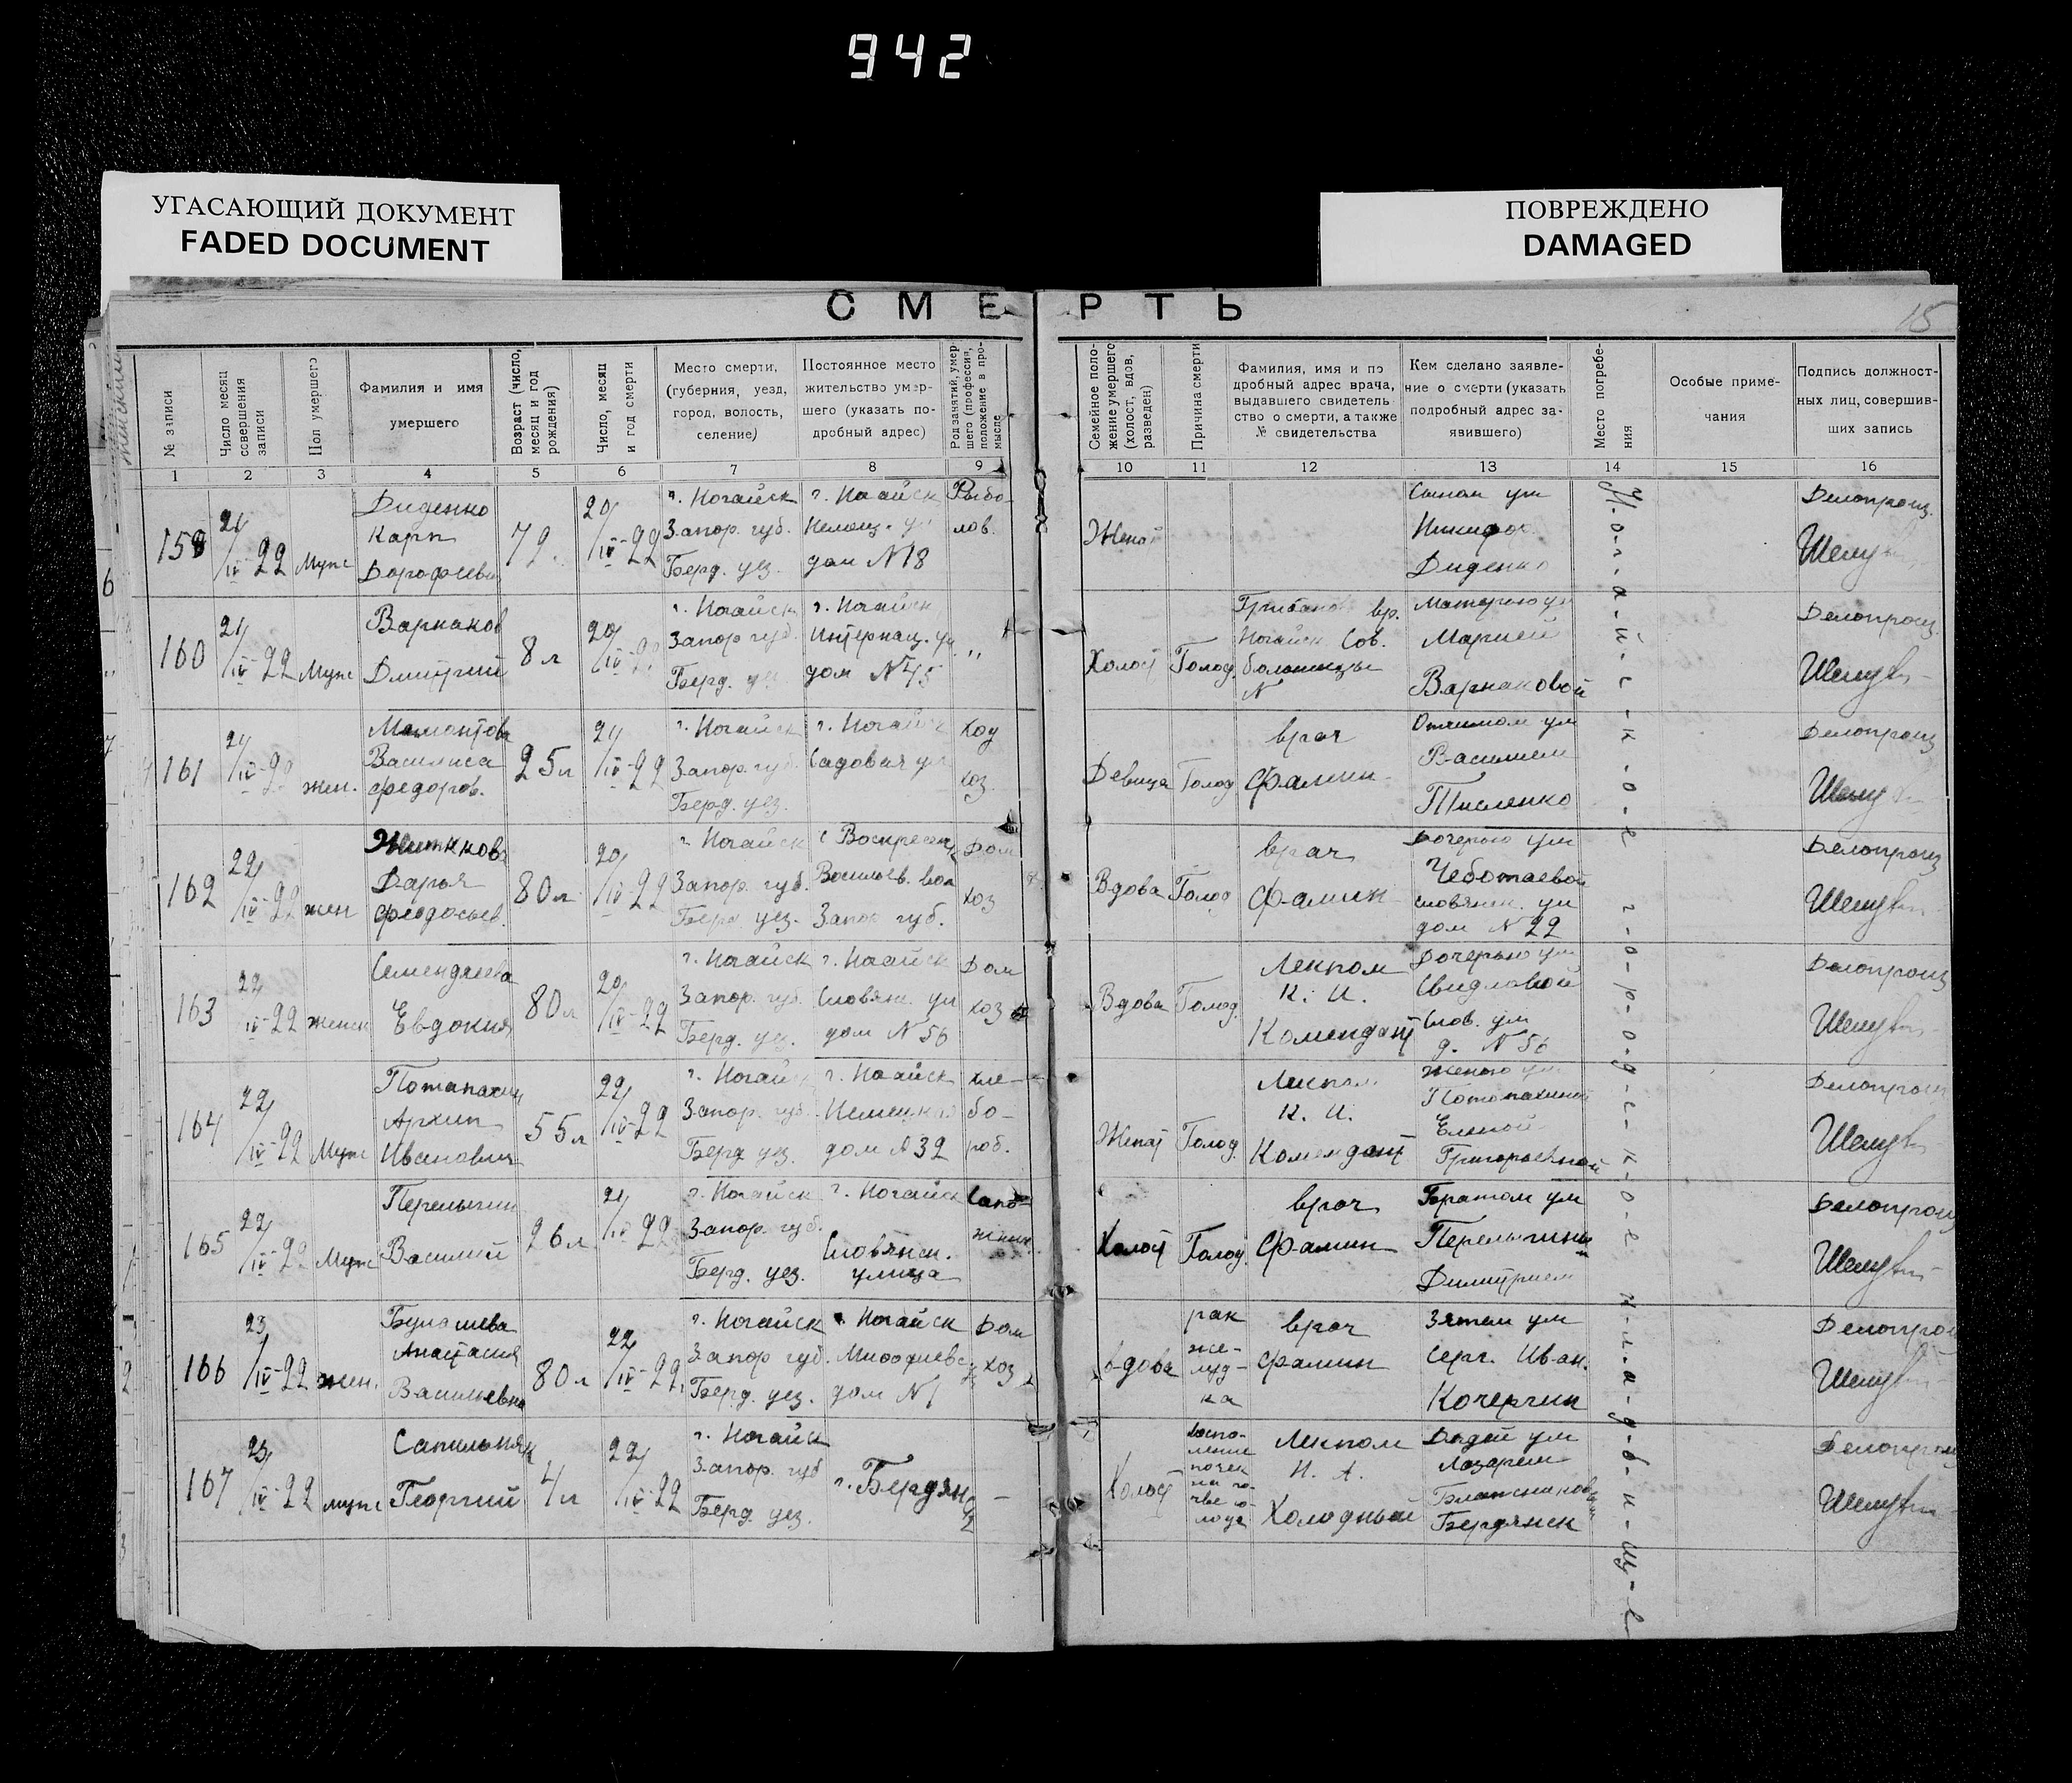 942
УГАСАЮЩИЙ ДОКУМЕНТ
FADED DOCUMENT
ПОВРЕЖДЕНО
DAMAGED
СМЕРТЬ
15
№ записи
Число месяц совершения записи
Пол умершего
Фамилия и имя умершего
Возраст (число, месяц и год рождения)
Число, месяц и год смерти
Место смерти, (губерния, уезд, город, волость, селение)
Постоянное место жительство умершего (указать подробный адрес)
Род занятий, умершего (профессия, положение в промысле
Семейное положение умершего (холост, вдов, разведен)
Причина смерти
Фамилия, имя и подробный адрес врача, выдавшего свидетельство о смерти, а также № свидетельства
Кем сделано заявление о смерти (указать подробный адрес заявившего)
Место погребения
Особые примечания
Подпись должностных лиц, совершивших запись
1 2 3 4 5 6 7 8 9 10 11 12 13 14 15 16
159 21/IV-22 Муж Диденко Карп Дорофеевич 72. 20/IV-22 г. Ногайск Запор. губ. Берд. уез. г. Ногайск Немец. ул дом N 18 Рыболов.
Женат Сыном ум Никифор Диденко Делопроиз.
160 21/IV-22 Муж Варнаков Дмитрий 8 л 20/IV-22 г. Ногайск Запор губ. Берд. уез г. Ногайск Интернац. ул дом N 45 "
Холост Голод. Грибанов вр. Ногайск Сов. больницы N Матерью ум Марией Варнаковой Делопроиз.
161 21/IV-22 жен. Мамонтова Василиса Федоров. 25 л 21/IV-22 г. Ногайск Запор. губ. Берд. уез. г. Ногайск Садовая ул хоз.
Девица Голод врач Фамин Отчимом ум Василием Делопроиз
162 22/IV-22 жен Дарья Феодосьев. 80 л 20/IV-22 г Ногайск Запор. губ. Берд уез. с Воскресенк Васильев. вол Запор губ. Дом хоз
Вдова Голод врач Фамин Дочерью ум Чеботаевой словянск. ул дом N 22 Делопроиз
163 22/IV-22 женск Семендяева Евдокия 80 л 20/IV-22 г. Ногайск Запор. губ. Берд. уез. г. Ногайск Словянс. ул дом N 56 Дом хоз
Вдова Голод. Лекпом К. И. Комендант Дочерью ум Слов. ул д. N 56 Делопроиз
164 22/IV-22 Муж Потапахин Архип Иванович 55 л 22/IV-22 г. Ногайск Запор. губ. Берд уез. г. Ногайск Немецкая дом N 32 хлебороб.
Женат Голод. Лекпом К. И. Комендант Женою ум Потапахиной Еленой Григорьевной Делопроиз
165 22/IV-22 Муж Перелыгин Василий 26 л 21/IV-22 г. Ногайск Запор. губ. Берд. уез. г. Ногайск Словянск. улица Сапожник.
Холост Голод. врач Фамин Братом ум Перелыгиным Димитрием Делопроиз
166 23/IV-22 жен. Анастасия Васильевна 80 л 22/IV-22 г. Ногайск Запор губ. Берд. уез. г Ногайск дом N 1 Дом хоз
вдова рак желудка врач Фамин Зятем ум Серг. Иван. Кочергин Делопроиз
167 23/IV-22 муж Георгий 4 л 22/IV-22 г. Ногайск Запор. губ Берд. уез. г. Бердянск –
Холост восполение почек на почве голода Лекпом И. А. Холодный Дядей ум Лазарем Бердянск Делопроиз
Н-о-г-а-й-с-к-о-е г-о-р-о-д-с-к-о-е к-л-а-д-б-и-щ-е